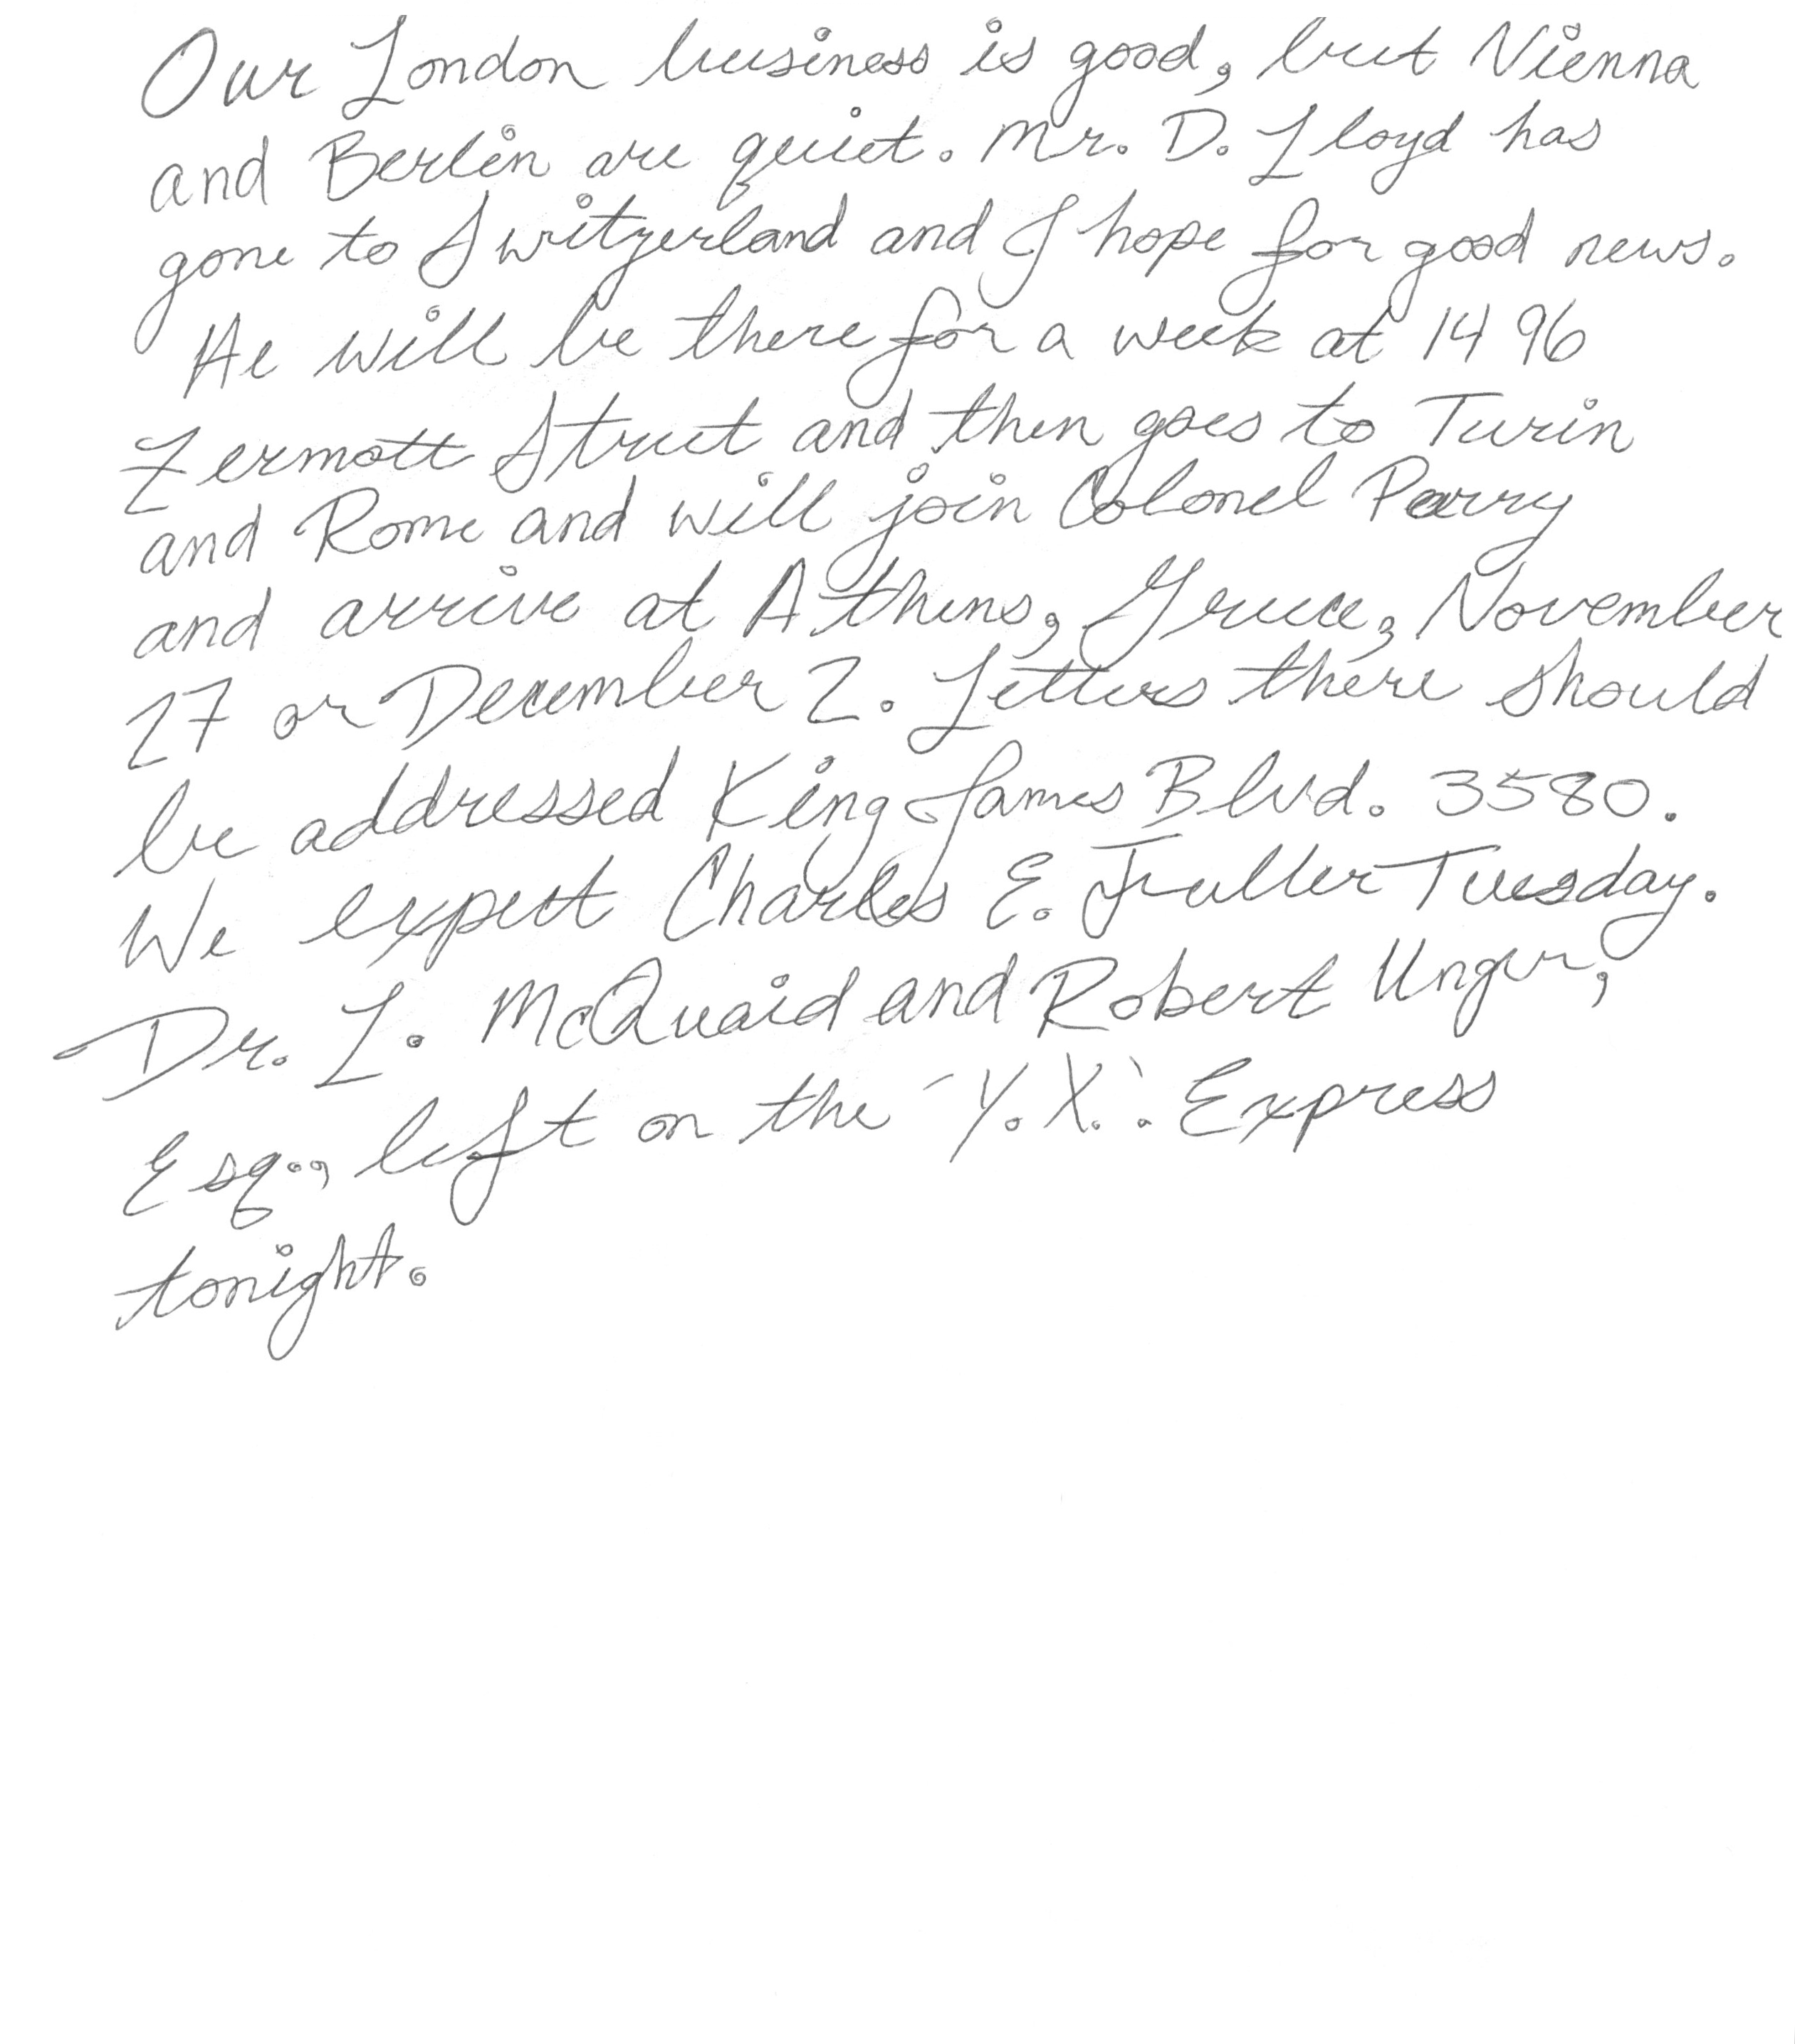 Our London business is good, but Vienna
and Berlin are quiet. Mr. D. Lloyd has
gone to Switzerland and I hope for good news.
He will be there for a week at 1496
Zermott Street and then goes to Turin
and Rome and will join Colonel Parry
and arrive at Athens, Greece, November
27 or December 2. Letters there should
be addressed King James Blvd. 3580.
We expect Charles E. Fuller Tuesday.
Dr. L. McQuaid and Robert Unger,
Esq., left on the "Y.X." Express
tonight.